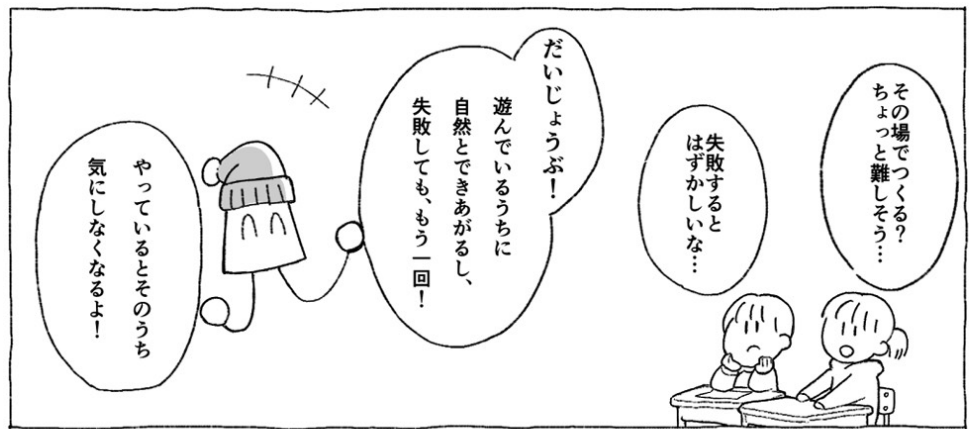 その場でつくる？
ちょっと難しそう…
失敗すると
はずかしいな…
だいじょうぶ！
遊んでいるうちに
自然とできあがるし、
失敗しても、もう一回！
やっているとそのうち
気にしなくなるよ！